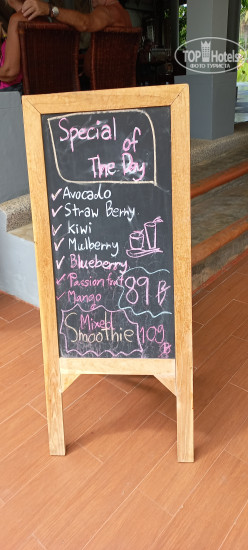 TOPHotels
ФОТО ТУРИСТА
Special of
The Day
✓Avocado
✓Straw Berry
✓Kiwi
✓Mulberry
✓Blueberry
✓Passion fruit
✓Mango
89฿
Mixed
Smoothie 109
฿